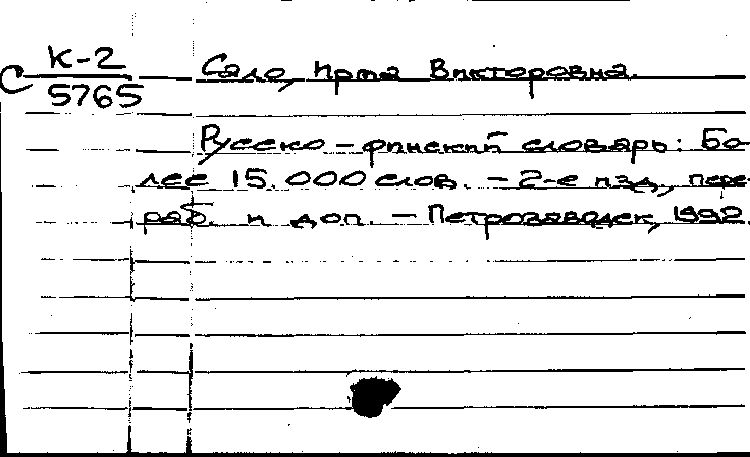 С К-2
5765
Сало, Ирма Викторовна.
Русско-финский словарь: Бо-
лее 15.000 слов. - 2-е изд., пере-
раб. и доп. - Петрозаводск, 1992.